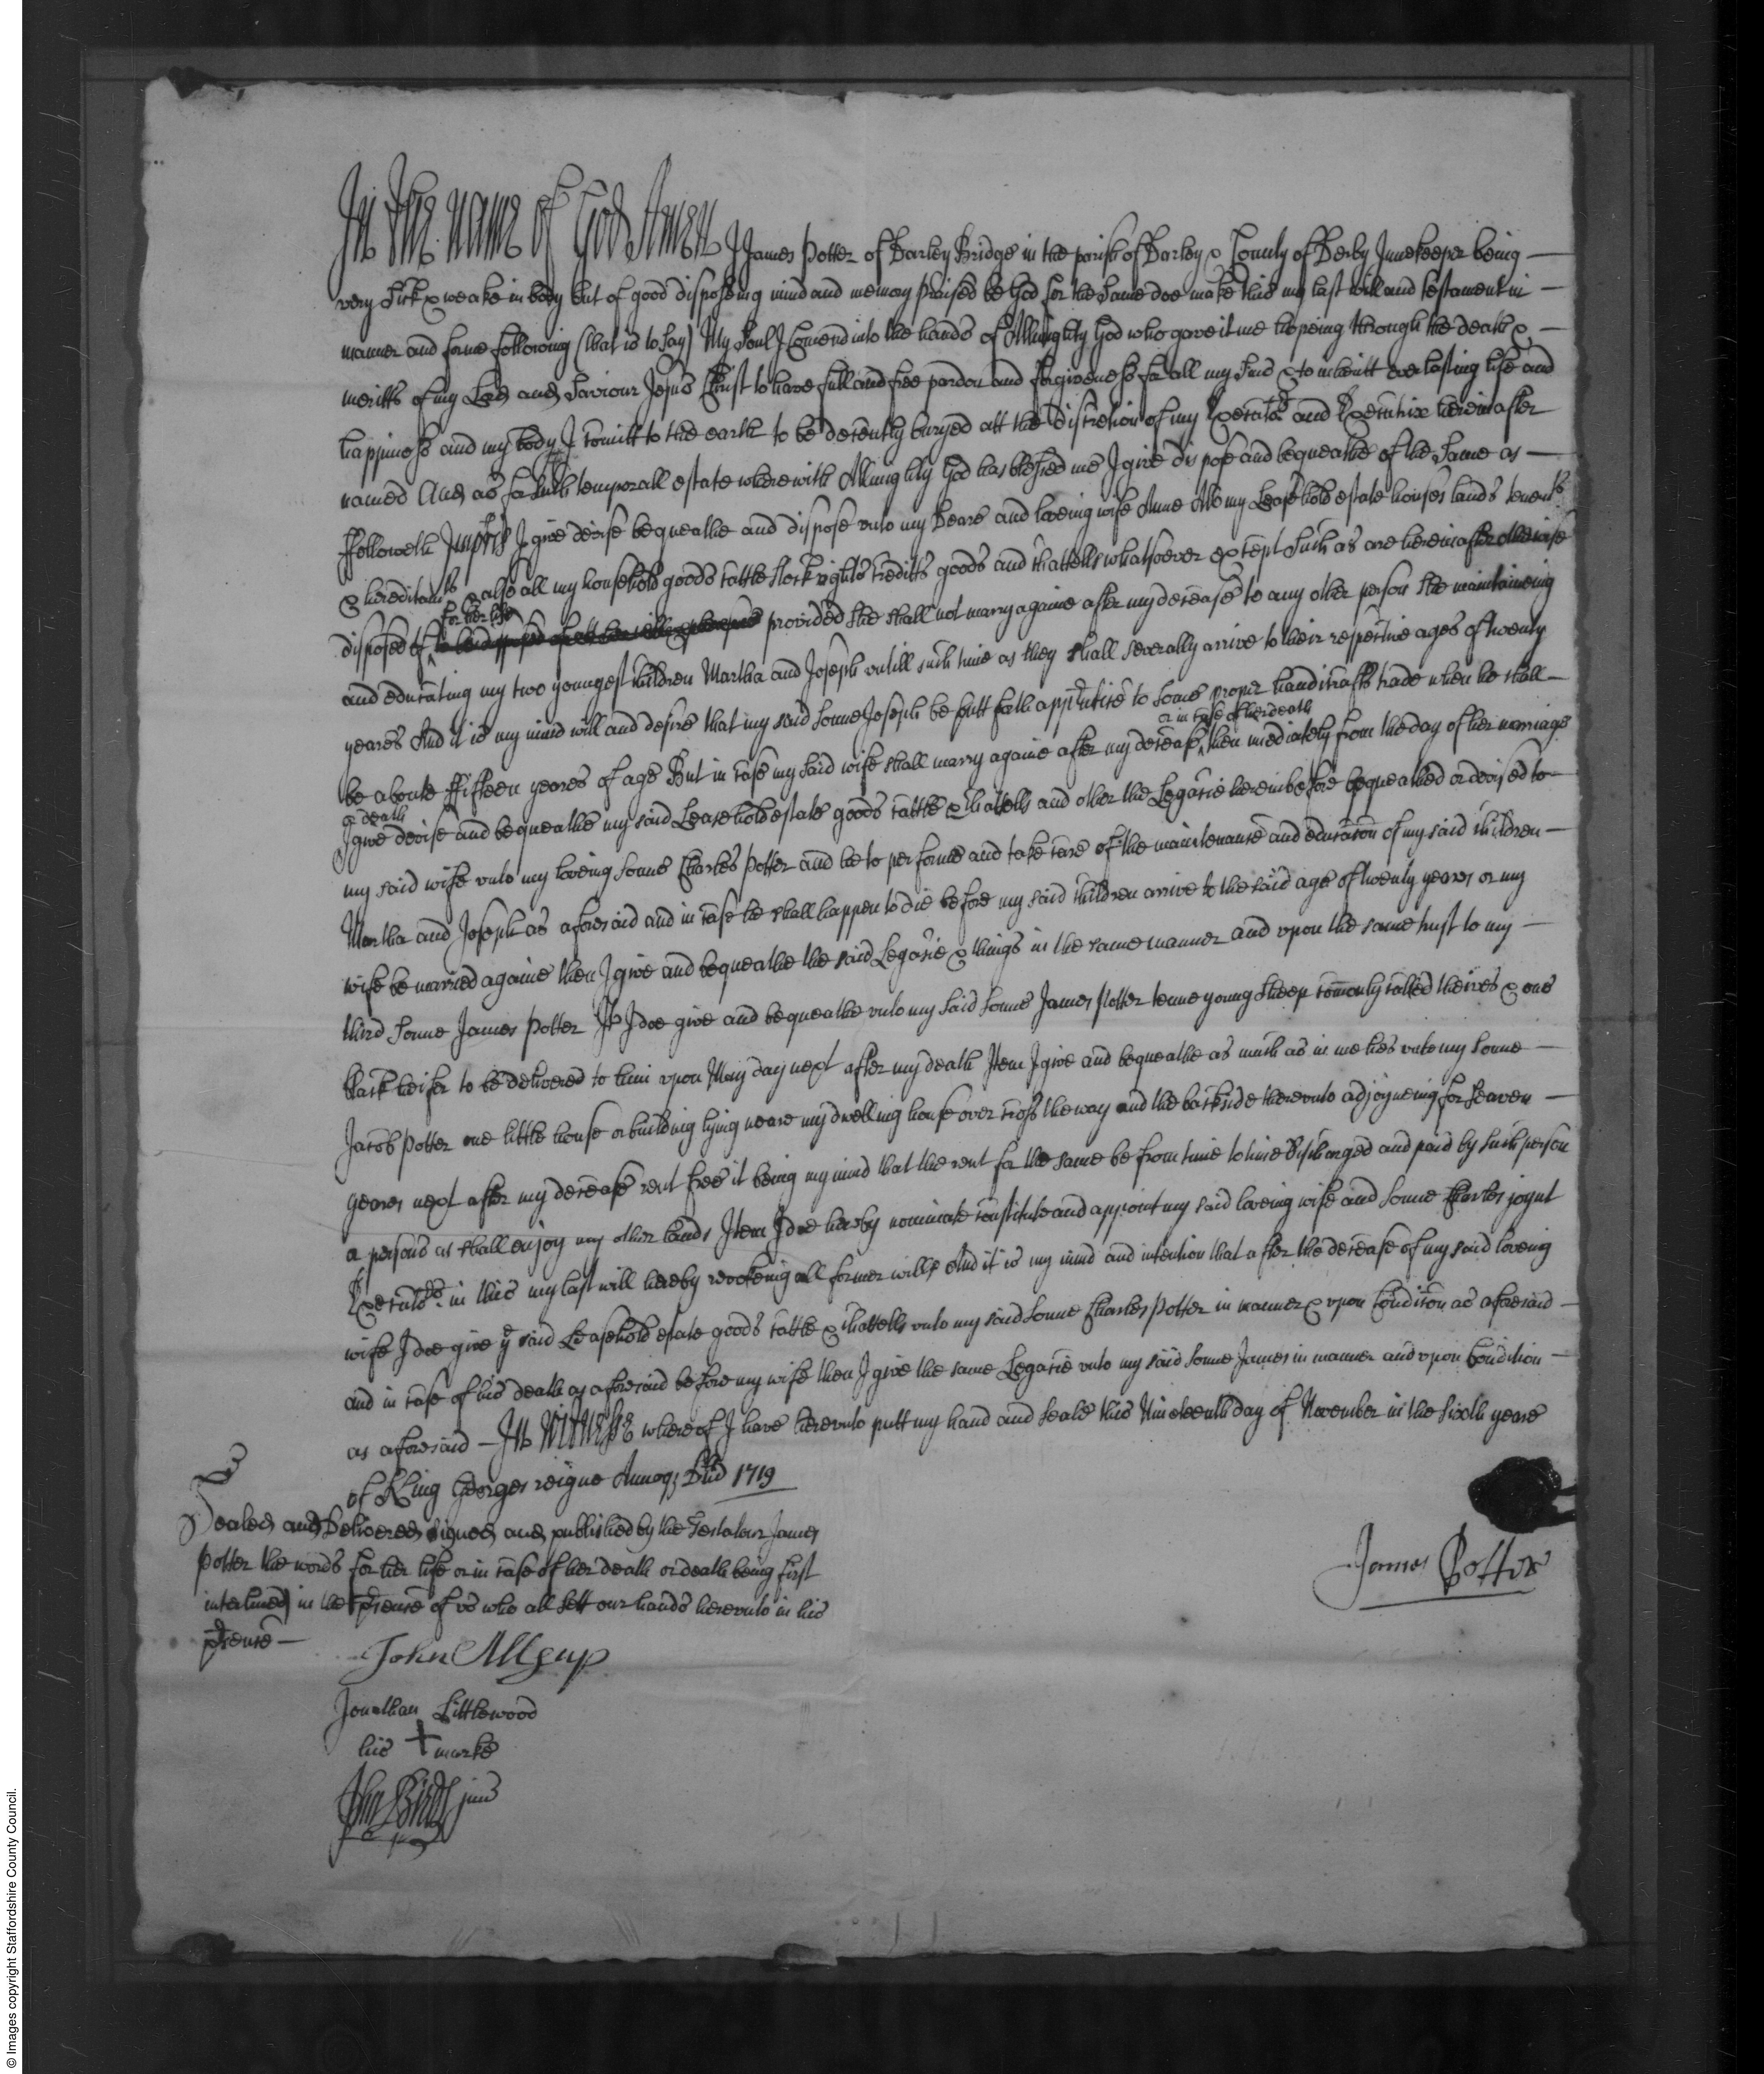 In the name of God Amen I James Potter of Darley Bridge in the parish of Darley & County of Derby Innekeeper being
very sick & weake in body but of good disposeing mind and memory praised be God for the same doe make this my last will and testament in
manner and forme following (that is to say) My Soul I Comend into the hands of Allmighty God who gave it me hopeing through the death &
meritts of my Lord and Saviour Jesus Christ to have full and free pardon and forgiveness for all my Sins & to inheritt everlasting life and
happiness and my body I comitt to the earth to be decently buryed att the discretion of my Executor and Executrix hereinafter
named And as for such temporall estate wherewith Allmighty God has blessed me I give dispose and bequeathe of the same as
ffolloweth Imprîs I give devise bequeathe and dispose unto my Deare and loveing wife Anne All my Leasehold estate houses lands tenemts
& hereditamts & also all my household goods cattle stock rights creditts goods and chattells whatsoever except such as are hereinafter otherwise
for her life
disposed of provided she shall not marry againe after my decease to any other person she maintaineing
and educating my two youngest children Martha and Joseph untill such time as they shall severally arrive to their respective ages of twenty
yeares And it is my mind will and desire that my said sonne Joseph be putt forth apprentice to some proper handicrafts trade when he shall
or in case of her death
be aboute ffifteen yeares of age But in case my said wife shall marry againe after my decease then imediately from the day of her marriage
or death
I give devise and bequeathe my said Leasehold estate goods cattle & chattells and other the Legacie hereinbefore bequeathed or devised to
my said wife unto my loveing sonne Charles Potter and he to performe and take care of the maintenance and education of my said children
Martha and Joseph as aforesaid and in case he shall happen to die before my said children arrive to the said age of twenty yeares or my
wife be married againe then I give and bequeathe the said Legacie & things in the same manner and upon the same trust to my
third sonne James Potter It I doe give and bequeathe unto my said sonne James Potter tenne young sheep comonly called theives & one
black heifer to be delivered to him upon May day next after my death Item I give and bequeathe as much as in me lies unto my sonne
Jacob Potter one little house or building lying neare my dwelling house over cross the way and the backside thereunto adjoyneing for seaven
yeares next after my decease rent free it being my mind that the rent for the same be from time to time discharged and paid by such person
or persons as shall enjoy my other lands Item I doe hereby nominate constitute and appoint my said loveing wife and sonne Charles joynt
Executors in this my last will hereby revokeing all former wills And it is my mind and intention that after the decease of my said loveing
wife I doe give ye said Leasehold estate goods cattle & chattells unto my said sonne Charles Potter in manner & upon condition as aforesaid
and in case of his death as aforesaid before my wife then I give the same Legacie unto my said sonne James in manner and upon condition
as aforesaid – In Witness whereof I have hereunto putt my hand and seale this Nineteenth day of November in the sixth yeare
of King Georges reigne Annoq; Dm̃ 1719
Sealed and Delivered signed and published by the Testatour James
Potter the words for her life or in case of her death or death being first
interlined in the presence of us who all sett our hands hereunto in his
presence
James Potter
John Allsup
Jonathan Littlewood
his + marke
© Images copyright Staffordshire County Council.